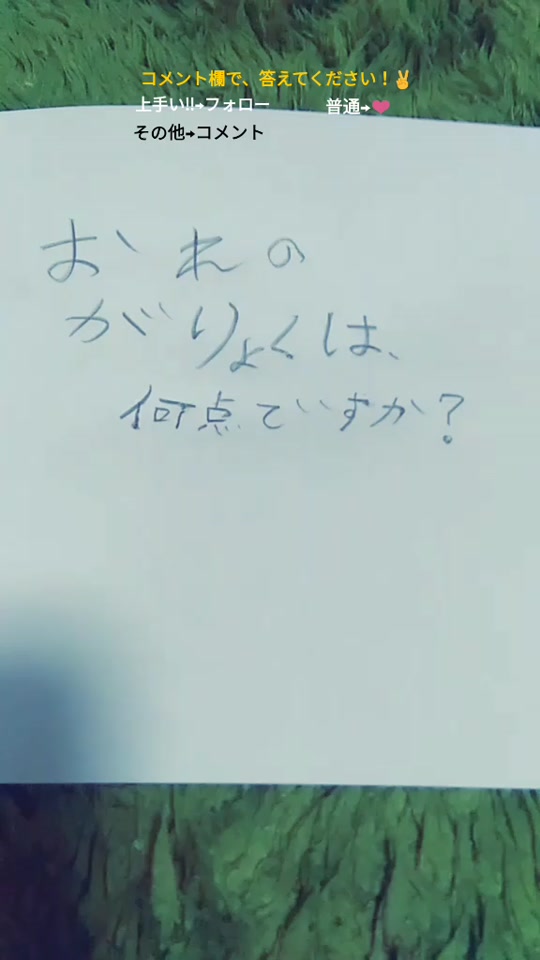 コメント欄で、答えてください！✌
上手い!!➡フォロー 普通➡💗
その他➡コメント
おれの
がりょくは、
何点ですか?